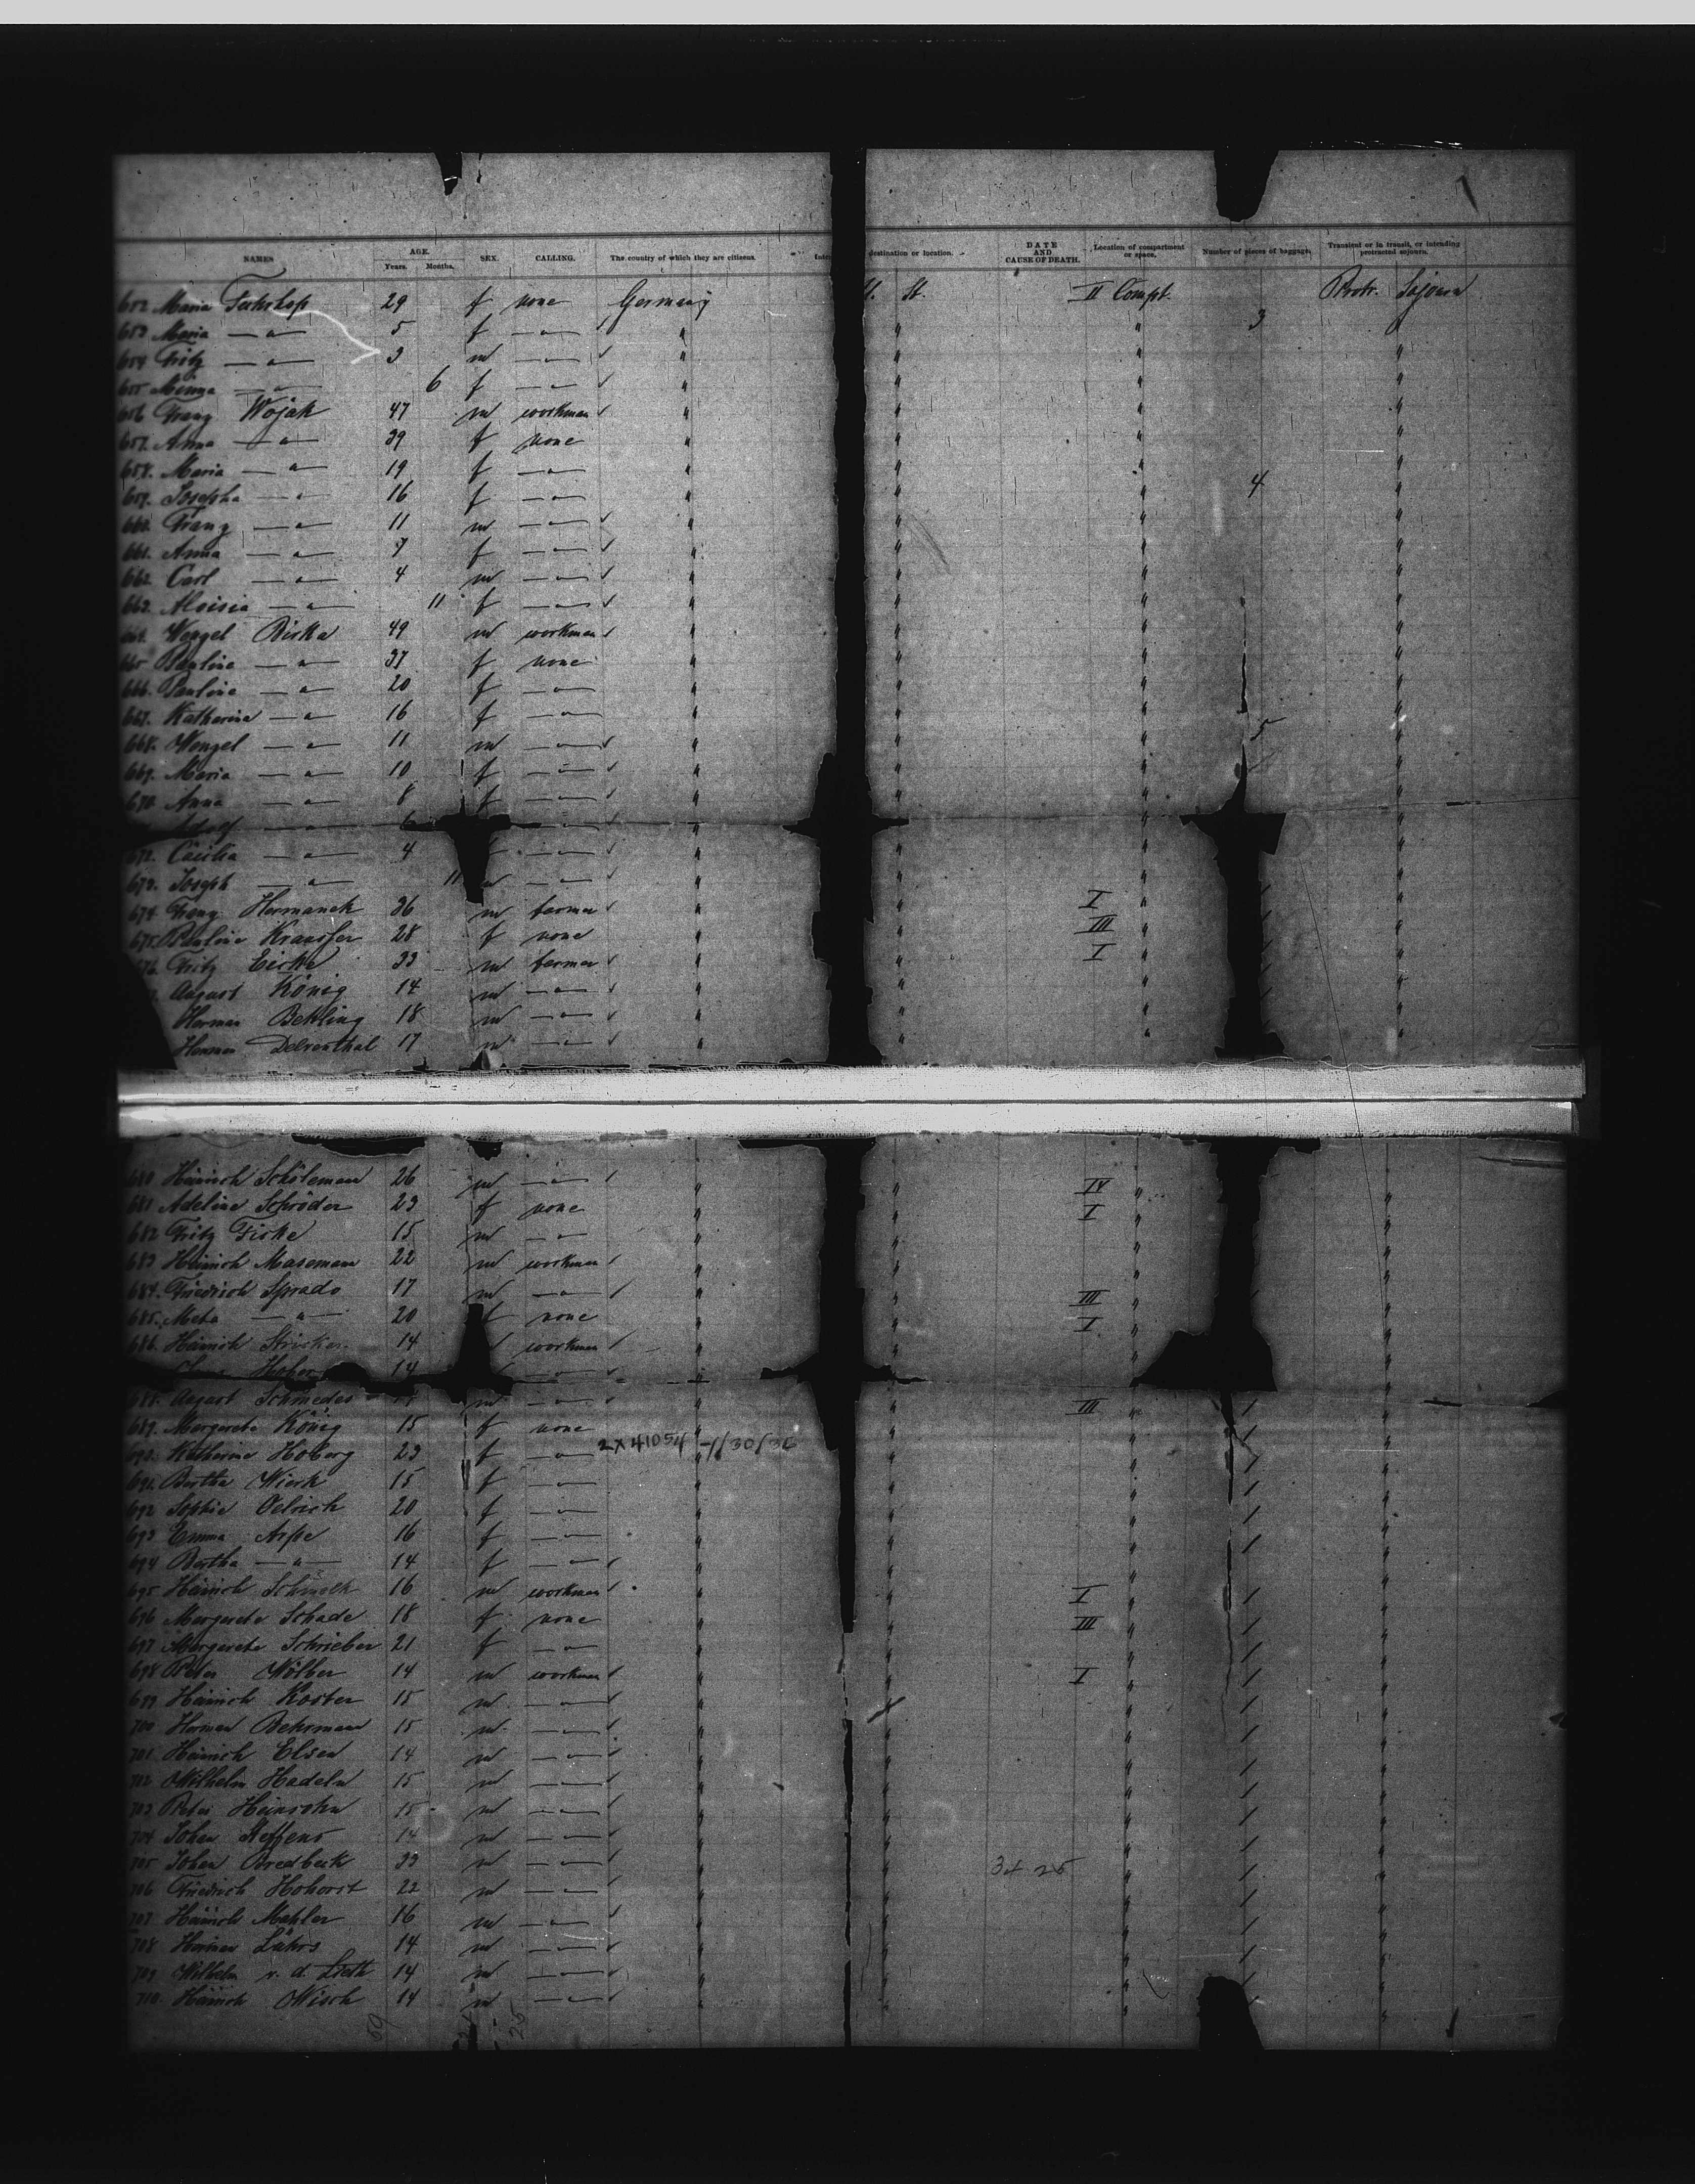 NAMES AGE. Years. Months. SEX. CALLING. The country of which they are citizens. destination or location. DATE AND CAUSE OF DEATH. Location of compartment or space. Number of pieces of baggage. Transient or in transit, or intending protracted sojourn.
652 Maria 29 f none Germany St. II Compt. Protr. Sojourn
653 Maria — " — 5 f — " — " " " 3 "
654 Fritz — " — 3 m — " — " " " "
655 Minna — " — 6 f — " — " " " "
656 Franz Wojak 47 m workman " " " "
657. Anna — " — 39 f none " " " "
658. Maria — " — 19 f — " — " " " "
659. Josepha — " — 16 f — " — " " " 4 "
660. Franz — " — 11 m — " — " " " "
661. Anna — " — 7 f — " — " " " "
662. Carl — " — 4 m — " — " " " "
663. Aloisia — " — 11 f — " — " " " "
664. Wenzel Riska 49 m workman " " " "
665 Pauline — " — 37 f none " " " "
666. Pauline — " — 20 f — " — " " " "
667. Katharina — " — 16 f — " — " " " 5 "
668. Wenzel — " — 11 m — " — " " " "
669. Maria — " — 10 f — " — " " " "
670. Anna — " — 8 f — " — " " " "
Adolf — " — 6 — " — " " " "
672. Cäcilia — " — 4 f — " — " " " "
673. Joseph — " — 11 m — " — " " " "
674 Franz Hermanek 36 m farmer " " I " "
675. Pauline 28 f none " " III " "
676. Fritz 33 m farmer " " I " "
August König 14 m — " — " " " "
Herman Behling 18 m — " — " " " "
Herman Delventhal 17 m — " — " " " "
680 Heinrich Schöleman 26 m — " — " " IV "
681 Adeline Schröder 23 f none " " I " "
682 Fritz Fiske 15 m — " — " " " "
683 Heinrich Maseman 22 m workman " " " "
684. Friedrich Sprado 17 m — " — " " III " "
685. Meta — " — 20 f none " " I " "
686. Heinrich Stricker 14 workman " " " "
14 — " — " " "
688. August Schmedes m — " — " " III " / "
689. Margarete König 15 f none " " " / "
690. Katharine Hoberg 23 f — " — 2X41054 " " " / "
691. Bertha Wierk 15 f — " — " " " / "
692 Sophie Oelrich 20 f — " — " " " / "
693 Emma Arpe 16 f — " — " " " / "
694 Bertha — " — 14 f — " — " " " "
695 Heinrich 16 m workman " " I " / "
696 Margarete Schade 18 f none " " III " / "
697 Margarete Schrieber 21 f — " — " " " / "
698 Peter Wölber 14 m workman " " I " / "
699 Heinrich Koster 15 m — " — " " " / "
700 Herman Behrman 15 m — " — " " " / "
701 Heinrich Elsen 14 m — " — " " " / "
702 Wilhelm Hadeln 15 m — " — " " " / "
703 Peter Heinsohn 15 m — " — " " " / "
704 Johan Steffens 14 m — " — " " " / "
705 Johan Bredbeck 33 m — " — " " " / "
706 Friedrich Hohorst 22 m — " — " " " / "
707 Heinrich Mahler 16 m — " — " " " / "
708 Herman Lührs 14 m — " — " " " / "
709 Wilhelm v. d. Lieth 14 m — " — " " " / "
710. Heinrich Wisch 14 m — " — " " " "
59 25